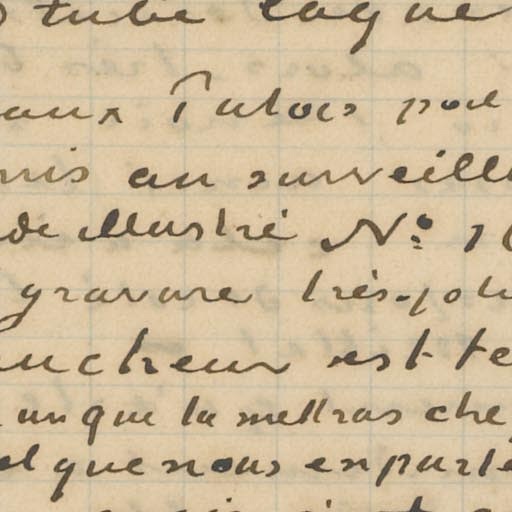 tube laque
aux Tulois pod
mis au surveill
de illustré N° 1
gravure très-joli
est te
un que tu mettras che
que nous en parle